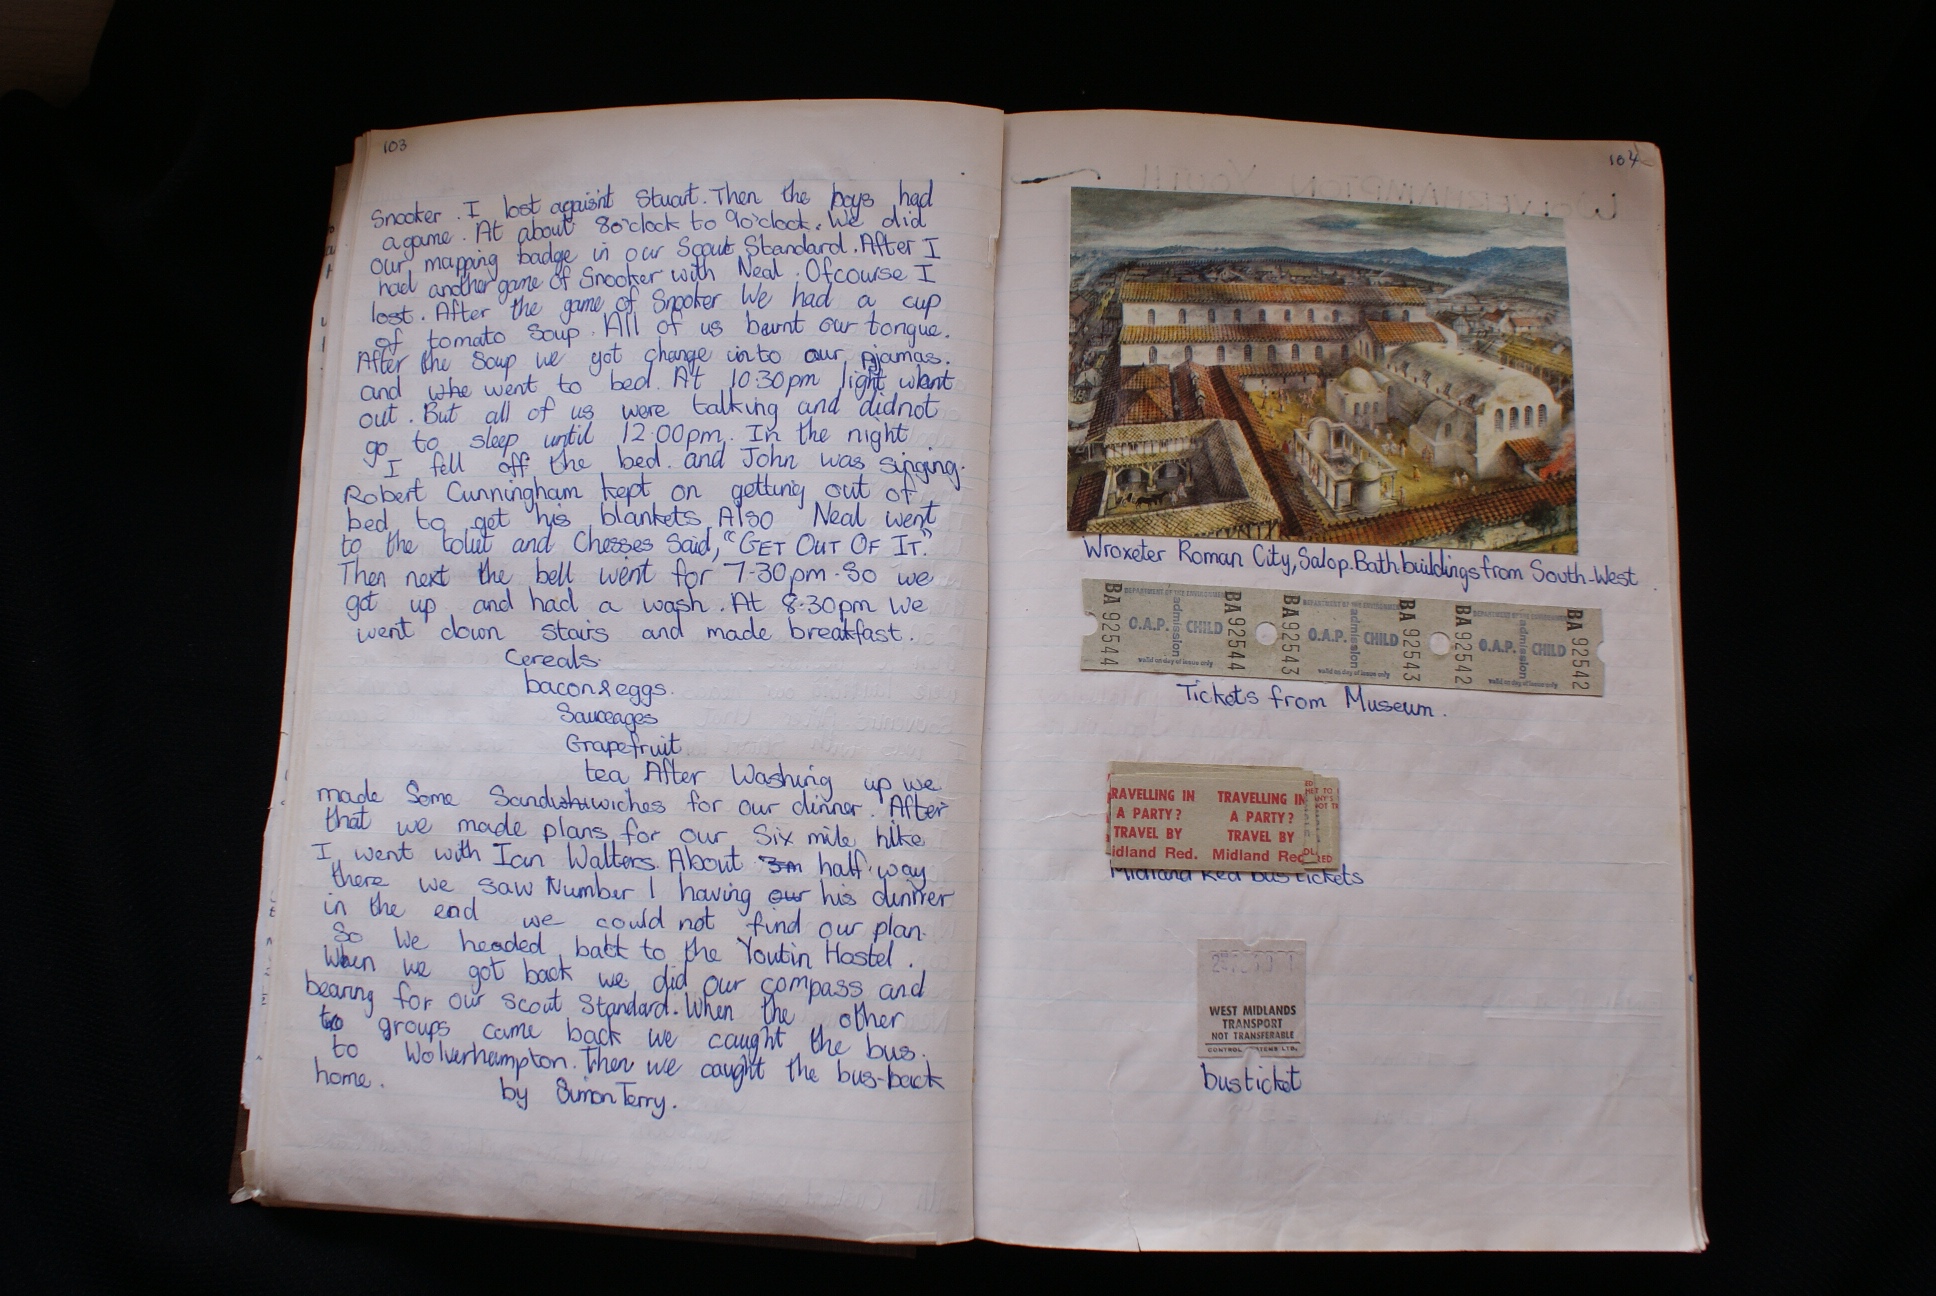 103
Snooker. I lost agaisnt Stuart. Then the boys had
a game. At about 8o'clock to 9o'clock. We did
our mapping badge in our Scout Standard. After I
had another game of Snooker with Neal. Ofcourse I
lost. After the game of Snooker We had a cup
of tomato Soup. All of us burnt our tongue.
After the Soup we got change into our pjamas.
and whe went to bed. At 10:30pm light went
out. But all of us were talking and didnot
go to sleep until 12.00pm. In the night
I fell off the bed. and John was singing.
Robert Cunningham kept on getting out of
bed to get his blankets. Also Neal went
to the toliet and Chesses Said, "GET OUT OF IT."
Then next the bell went for 7-30pm. So we
got up and had a wash. At 8.30pm we
went down stairs and made breakfast.
Cereals.
bacon & eggs.
Sauceages
Grapefruit
tea After Washing up we
made Some Sandwhiwiches for our dinner. After
that we made plans for our Six mile hike
I went with Ian Walters. About 3m half way
there we saw Number 1 having our his dinner
in the end we could not find our plan.
So We headed back to the Youtin Hostel.
When we got back we did our compass and
bearing for our Scout Standard. When the other
to groups came back we caught the bus.
to Wolverhampton. Then we caught the bus-back
home.
by Simon Terry.
104
WOLVERHAMPTON YOUTH
Wroxeter Roman City, Salop. Bath buildings from South-West
BA 92544 DEPARTMENT OF THE ENVIRONMENT O.A.P. admission CHILD valid on day of issue only BA 92544
BA 92543 DEPARTMENT OF THE ENVIRONMENT O.A.P. admission CHILD valid on day of issue only BA 92543
BA 92542 DEPARTMENT OF THE ENVIRONMENT O.A.P. admission CHILD valid on day of issue only BA 92542
Tickets from Museum.
RAVELLING IN TRAVELLING IN
A PARTY? A PARTY?
TRAVEL BY TRAVEL BY
idland Red. Midland Red
Midland Red bus tickets
WEST MIDLANDS
TRANSPORT
NOT TRANSFERABLE
CONTROL SYSTEMS LTD.
bus ticket